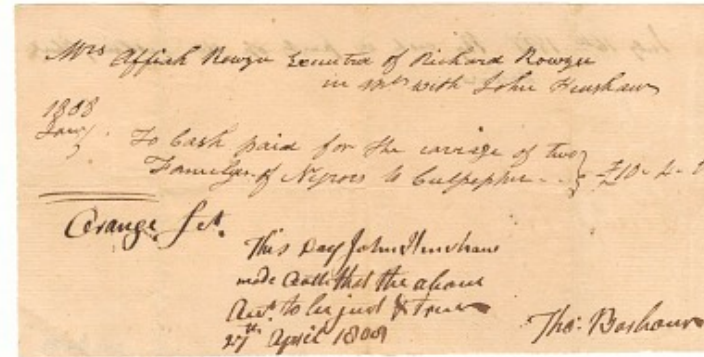 Mrs Affiah Rowzee Executrx of Richard Rowzee
in acct with John Henshaw
1808
Jany. To Cash paid for the carriage of two
Familys of Negros to Culpepher - - } £10 - 4 - 0
Orange Sct.
This Day John Henshaw
made Oath that the above
Acct. to be just & True
27th April 1809
Tho: